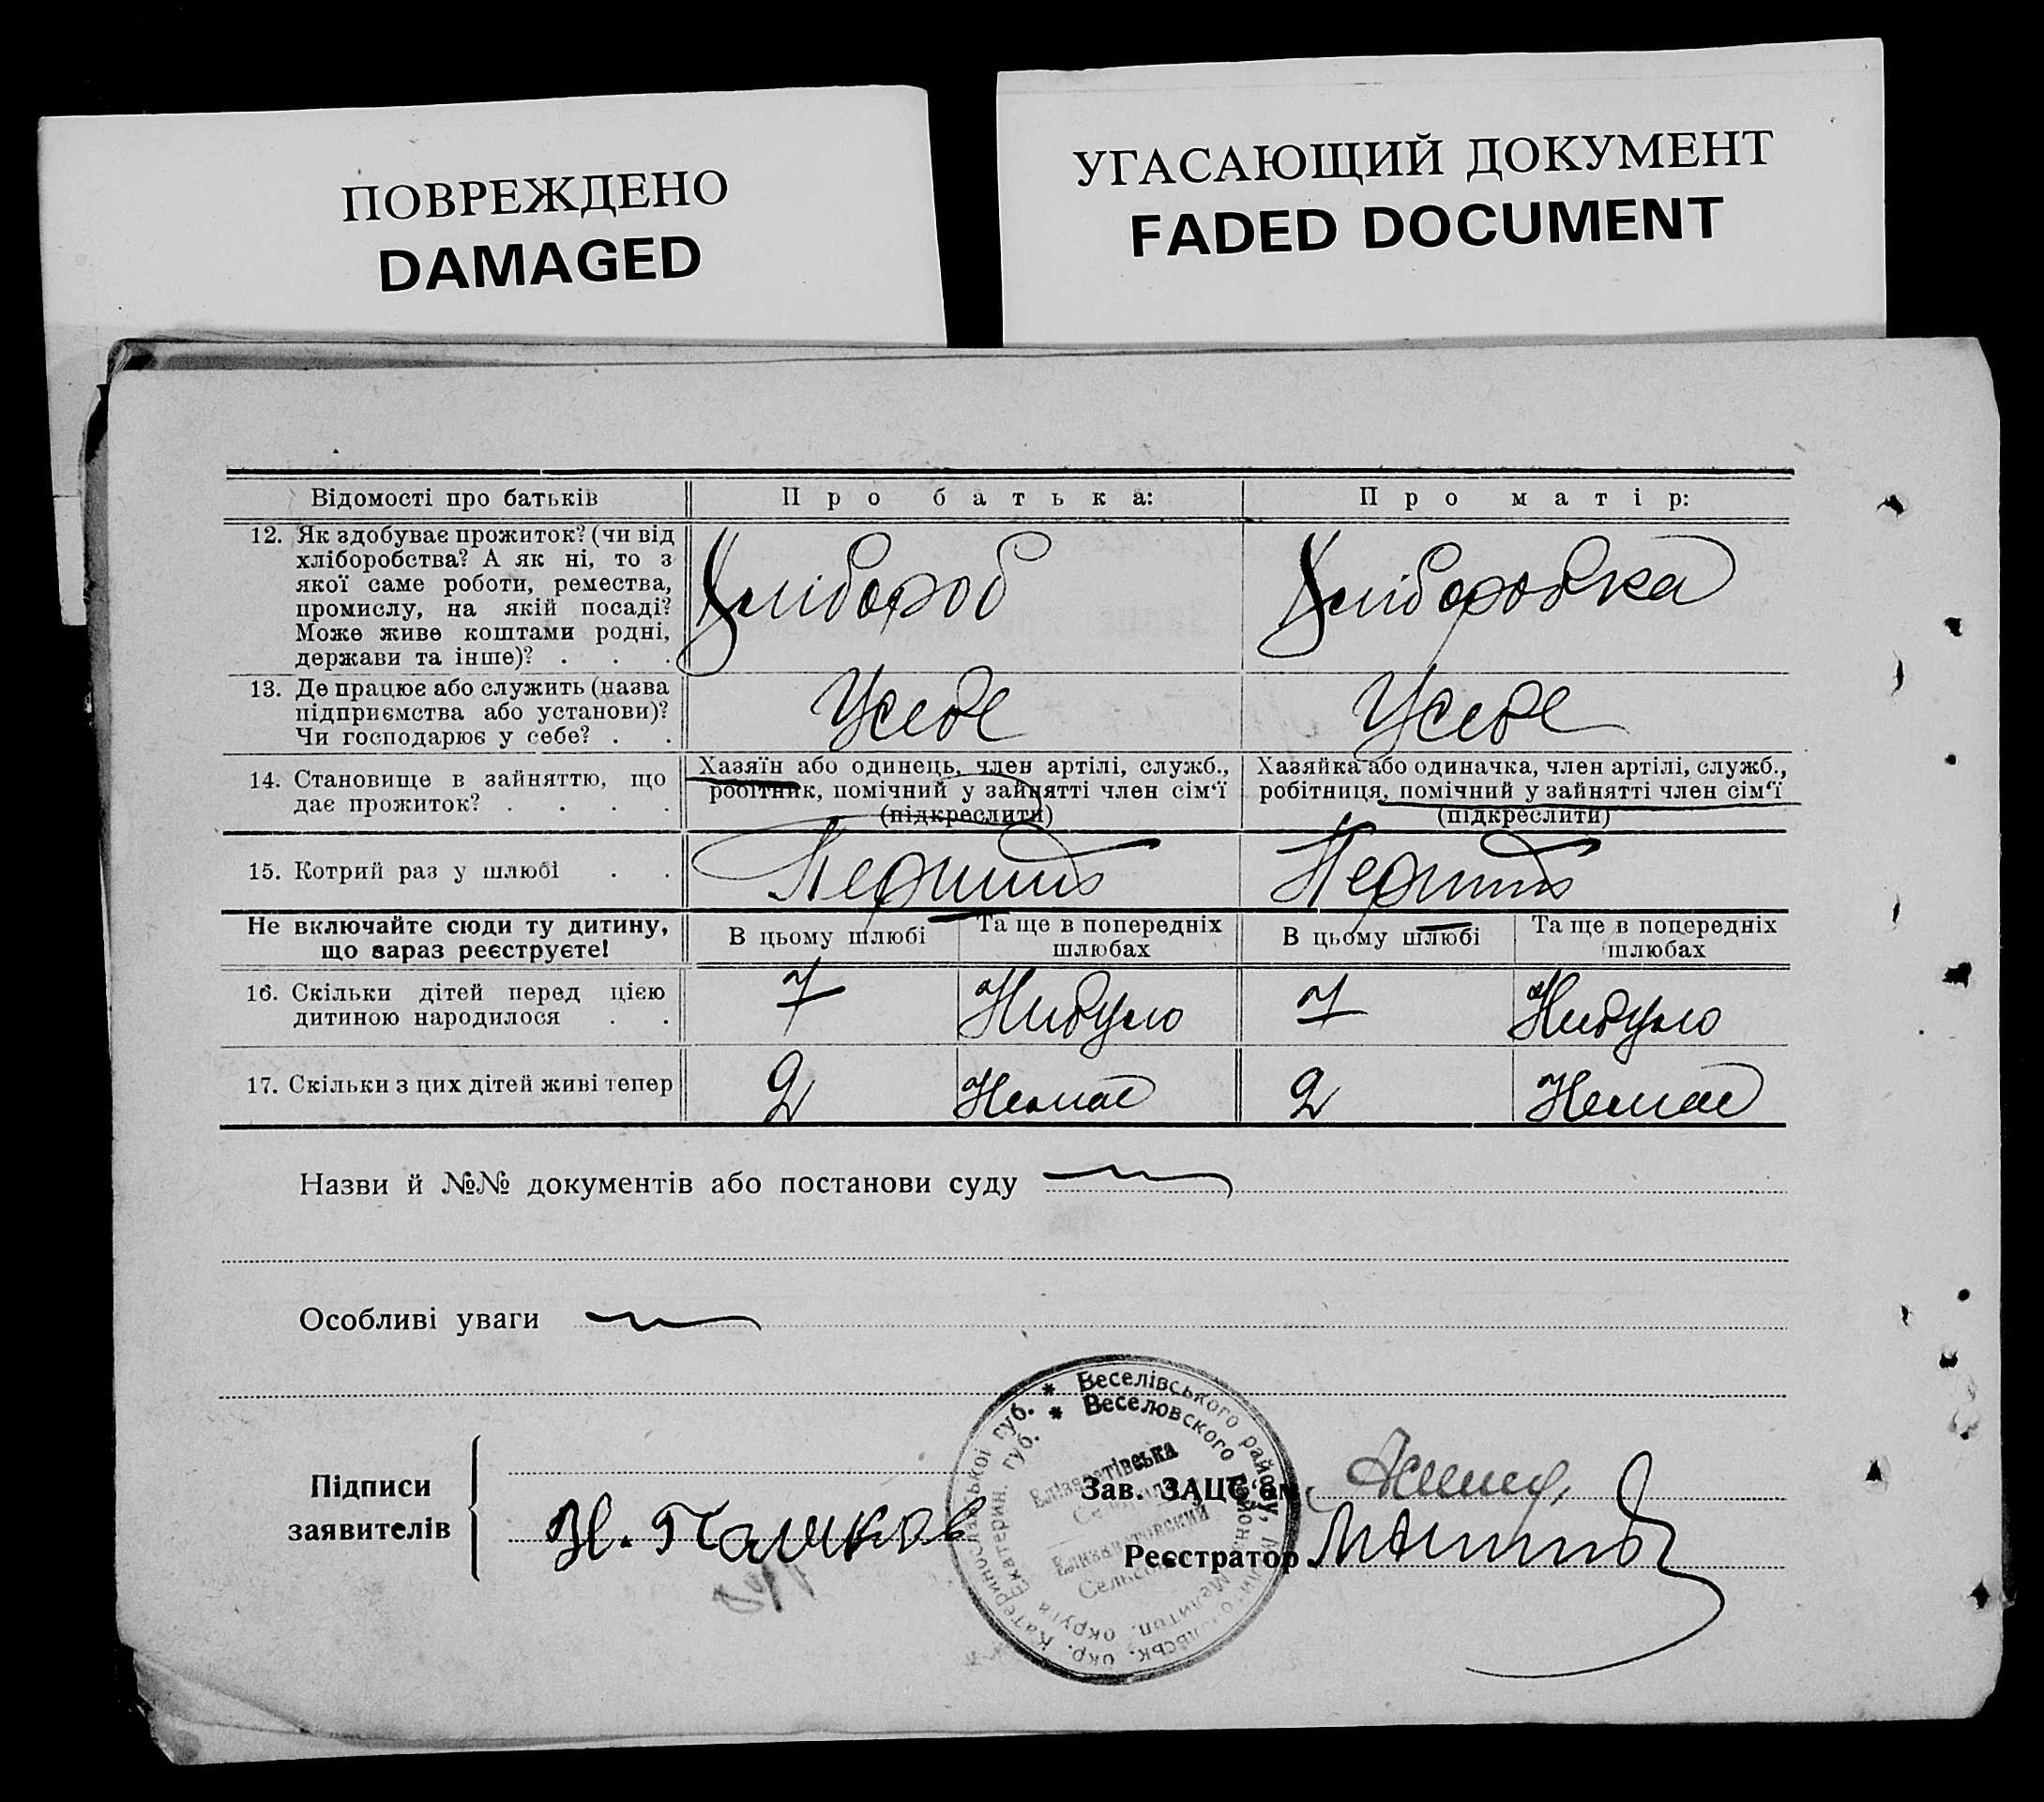 ПОВРЕЖДЕНО
DAMAGED
УГАСАЮЩИЙ ДОКУМЕНТ
FADED DOCUMENT
Відомості про батьків
Про батька:
Про матір:
12. Як здобуває прожиток? (чи від
хліборобства? А як ні, то з
якої саме роботи, ремества,
промислу, на якій посаді?
Може живе коштами родні,
держави та інше)? . . .
Хлібороб
Хліборобка
13. Де працює або служить (назва
підприємства або установи)?
Чи господарює у себе? . .
Усебе
Усебе
14. Становище в зайняттю, що
дає прожиток? . . . .
Хазяїн або одинець, член артілі, служб.,
робітник, помічний у зайнятті член сім'ї
(підкреслити)
Хазяйка або одиначка, член артілі, служб.,
робітниця, помічний у зайнятті член сім'ї
(підкреслити)
15. Котрий раз у шлюбі . .
Перший
Перший
Не включайте сюди ту дитину,
що зараз реєструєте!
В цьому шлюбі
Та ще в попередніх
шлюбах
В цьому шлюбі
Та ще в попередніх
шлюбах
16. Скільки дітей перед цією
дитиною народилося . .
7
Нибуло
7
Нибуло
17. Скільки з цих дітей живі тепер
2
Немає
2
Немає
Назви й №№ документів або постанови суду
Особливі уваги
Підписи
заявителів
Н. Пашков
Зав. ЗАЦС'ом
Реєстратор
* Веселівського району, Мелітопільськ. окр. Катеринославської губ.
* Веселовского района Мелитоп. округа Екатерин. губ.
Єлізаветівська
Сільрада
Елизаветовский
Сельсовет